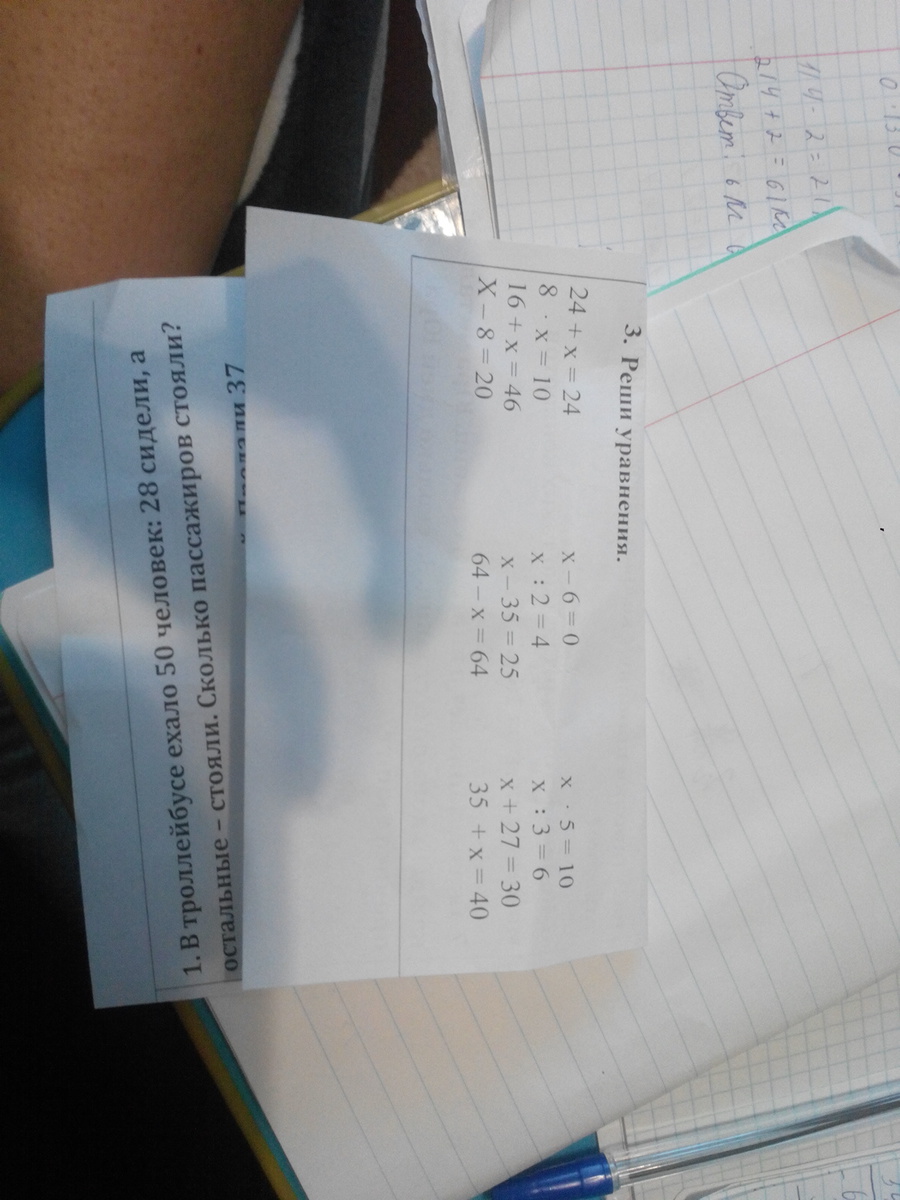 3. Реши уравнения.
24 + x = 24 x – 6 = 0 x · 5 = 10
8 · x = 10 x : 2 = 4 x : 3 = 6
16 + x = 46 x – 35 = 25 x + 27 = 30
X – 8 = 20 64 – x = 64 35 + x = 40
1. В троллейбусе ехало 50 человек: 28 сидели, а
остальные – стояли. Сколько пассажиров стояли?
37
2 = 2
214 + 2 = 61
Ответ: 6